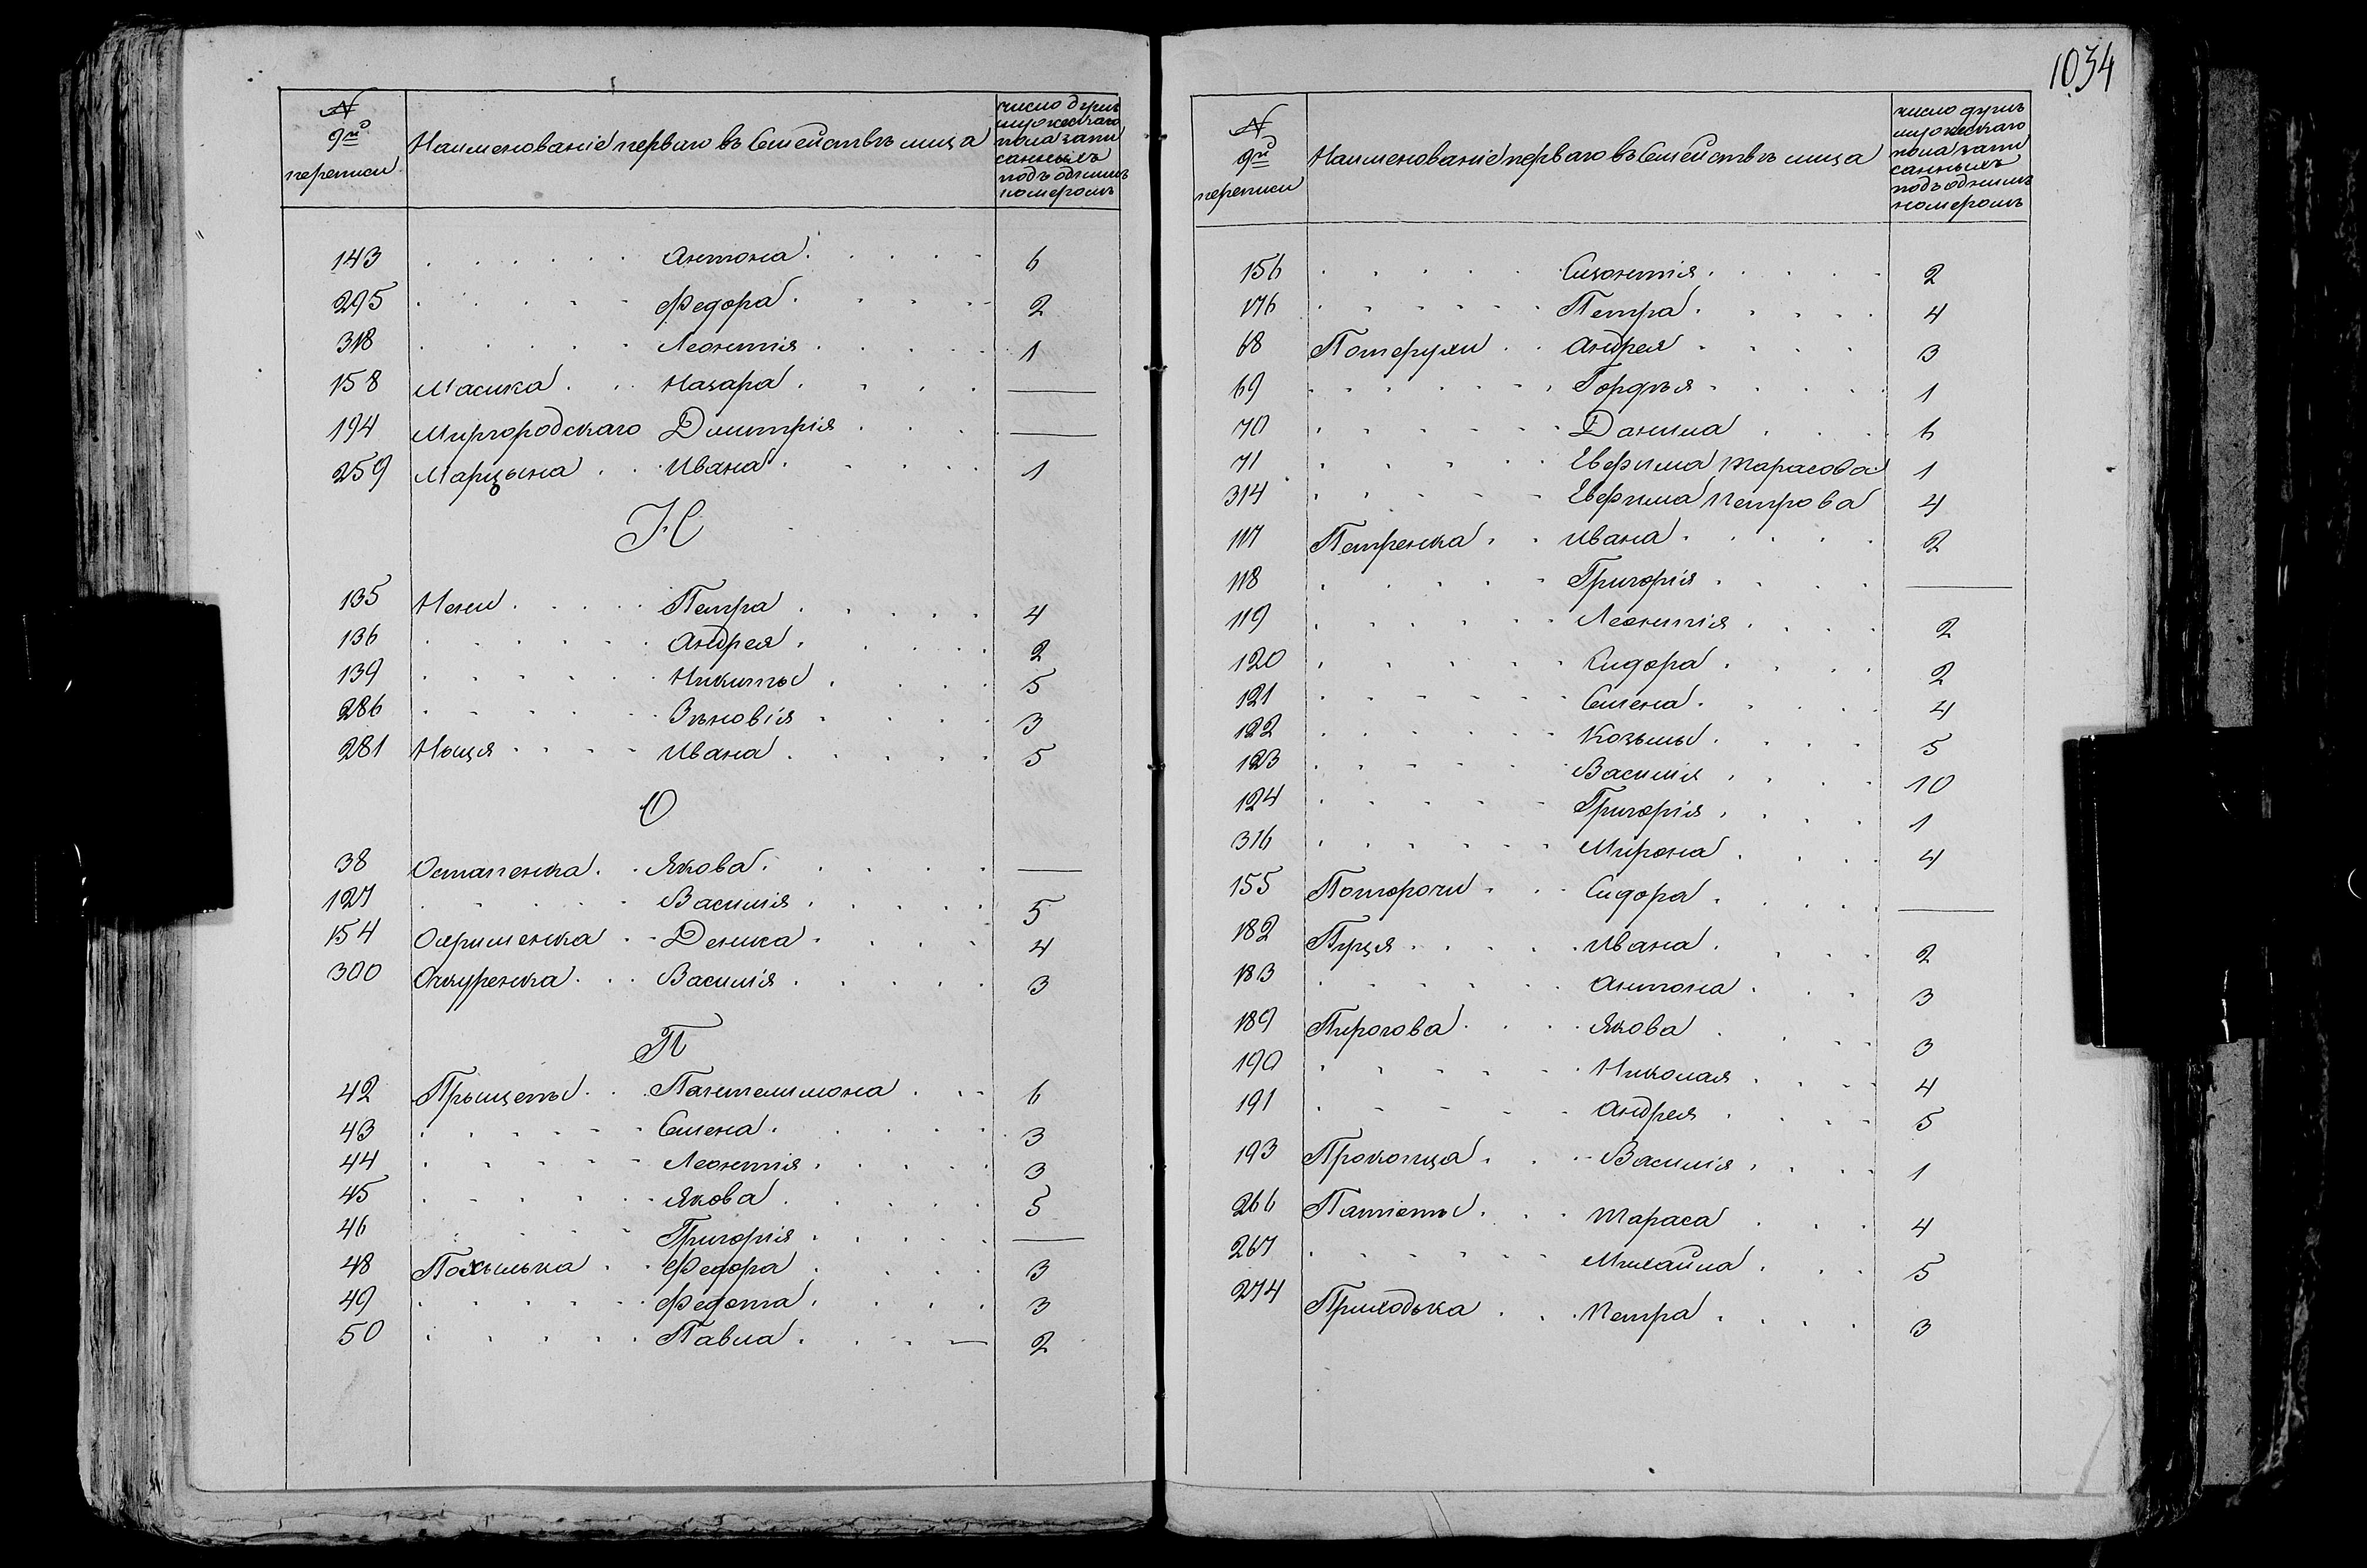 1034
№ 9й переписи Наименованіе перваго въ Семействѣ лица число душъ мужескаго пола запи санныхъ подъ однимъ номеромъ
143 . . . . . . Антона . . . . . 6
295 . . . . . Федора . . . . . 2
318 . . . . . Леонтія . . . . . 1
158 Масика . . Назара . . . . —
194 Миргородскаго Дмитрія . . . . —
259 Марцына . . Ивана . . . . . 1
Н
135 Нехи . . . . Петра . . . . . 4
136 . . . . . . Андрея . . . . . 2
139 . . . . . . Никиты . . . . 5
286 . . . . . . Зѣновія . . . . 3
281 Ныця . . . . Ивана . . . . . 5
О
38 Остапенка . . Якова . . . . . —
127 . . . . . Василія . . . . . 5
154 Охрименка . . Дениса . . . . 4
300 Очкуренка . . . Василія . . . . . 3
П
42 Прыщепы . . Пантелимона . . . 6
43 . . . . . . Семена . . . . . 3
44 . . . . . Леонтія . . . . . 3
45 . . . . . . Якова . . . . . 5
46 . . . . . . Григорія . . . . . —
48 Похылька . . Федора . . . . 3
49 . . . . . . Федота . . . . 3
50 . . . . . Павла . . . — 2
№ 9й переписи Наименованіе перваго въ Семействѣ лица число душъ мужескаго пола запи санныхъ подъ однимъ номеромъ
156 . . . . . Силонтія . . . . . 2
176 . . . . . . Петра . . . . . 4
68 Потерухи . . Андрея . . . . 3
69 . . . . . . Гордѣя . . . . . 1
70 . . . . . . Данила . . . 6
71 . . . . . Евфима Тарасова 1
314 . . . . . Евфима Петрова 4
117 Петренка . . Ивана . . . . . 2
118 . . . . . Григорія . . . . —
119 . . . . . . Леонтія . . . . 2
120 . . . . . Сидора . . . . 2
121 . . . . . . Семена . . . . . 4
122 . . . . . . Козьмы . . . . 5
123 . . . . . Василія . . . . 10
124 . . . . . Григорія . . . . 1
316 . . . . . . Мирона . . . . 4
155 Поторочи . . . Сидора . . . . . —
182 Пуця . . . . . Ивана . . . . 2
183 . . . . . . Антона . . . 3
189 Пирогова . . . . Якова . . . 3
190 . . . . . . Николая . . . . 4
191 . . . . . Андрея . . . . 5
193 Прокопца . . . Василія . . . . 1
266 Папіеты . . . Тараса . . . 4
267 . . . . . . Михайла . . . 5
274 Приходька . . . Петра . . . . . 3